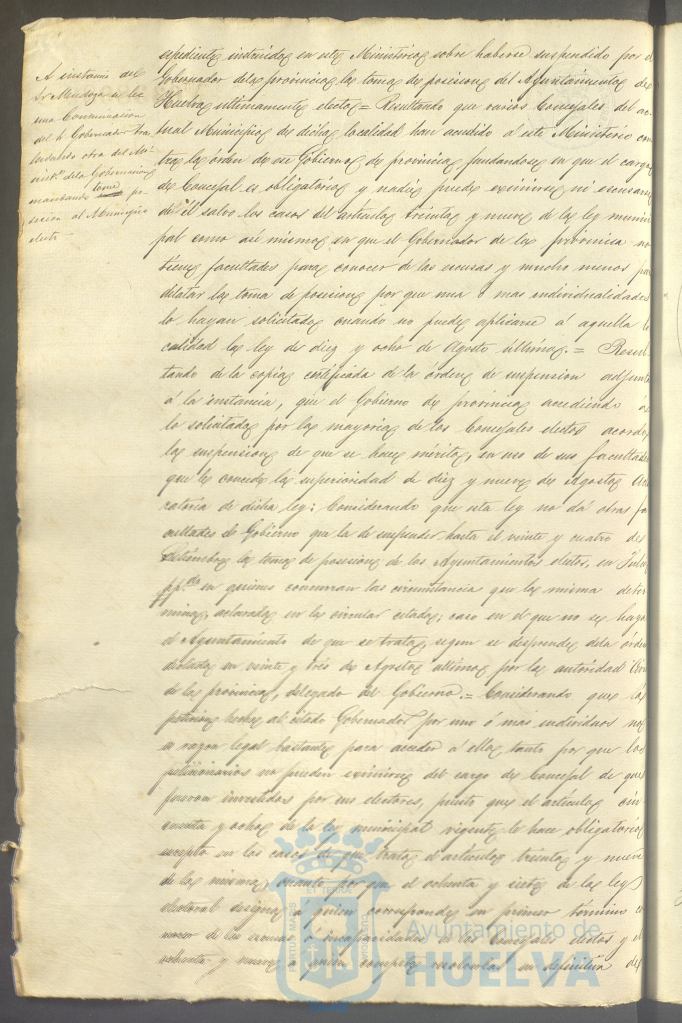 A instancia del
Sr Mendoza se lee
una Comunicacion
del Sr Gobernador tras
ladando otra del Mi-
nistº dela Gobernacion
mandando tome po-
sesion al Municipio
electo
espediente instruido en este Ministerio sobre haberse suspendido por el
Gobernador dela provincia la toma de posesion del Ayuntamiento de
Huelva ultimamente electo = Resultando que varios Concejales del ac-
tual Municipio de dicha localidad han acudido á este Ministerio con
tra la órden de ese Gobierno de provincia fundandose en que el cargo
de Concejal es obligatorio y nadie puede eximirse ni escusarse
de él salvo los casos del artículo treinta y nueve de la ley munici
pal como asi mismo en que el Gobernador de la provincia no
tiene facultades para conocer de las escusas y mucho menos para
dilatar la toma de posesion por que una ó mas individualidades
lo hayan solicitado cuando no puede aplicarse á aquella lo
calidad la ley de diez y ocho de Agosto último. = Resul
tando de la copia certificada de la órden de suspension adjunta
á la instancia, que el Gobierno de provincia accediendo á
lo solicitado por la mayoria de los Concejales electos acordó
la suspension de que se hace mérito, en uso de sus facultades
que le concede la superioridad de diez y nueve de Agosto acla
ratoria de dicha ley: Considerando que esta ley no dá otras fa
cultades al Gobierno que la de suspender hasta el veinte y cuatro de
Setiembre la toma de posesion de los Ayuntamientos electos en Julio
pp.do en quienes concurran las circunstancia que la misma deter
mina, aclarada en la circular citada; caso en el que no se haya
el Ayuntamiento de que se trata, segun se desprende dela órden
dictada en veinte y tres de Agosto último por la autoridad
de la provincia, delegado del Gobierno. = Considerando que la
peticion hecha al citado Gobernador por uno ó mas individuos no
es razon legal bastante para acceder á ella tanto por que los
peticionarios no pueden eximirse del cargo de Concejal de que
fueron investidos por sus electores, puesto que el artículo cin-
cuenta y ocho de la ley municipal vigente le hace obligatorio
escepto en los casos de que trata el artículo treinta y nueve
de la misma, cuanto por que el ochenta y siete de la ley
electoral designa á quien corresponde en primer término co
nocer de las escusas ó incapacidades de los Concejales electos y el
ochenta y nueve á quien compete resolverlas en definitiva de
Ayuntamiento de
HUELVA